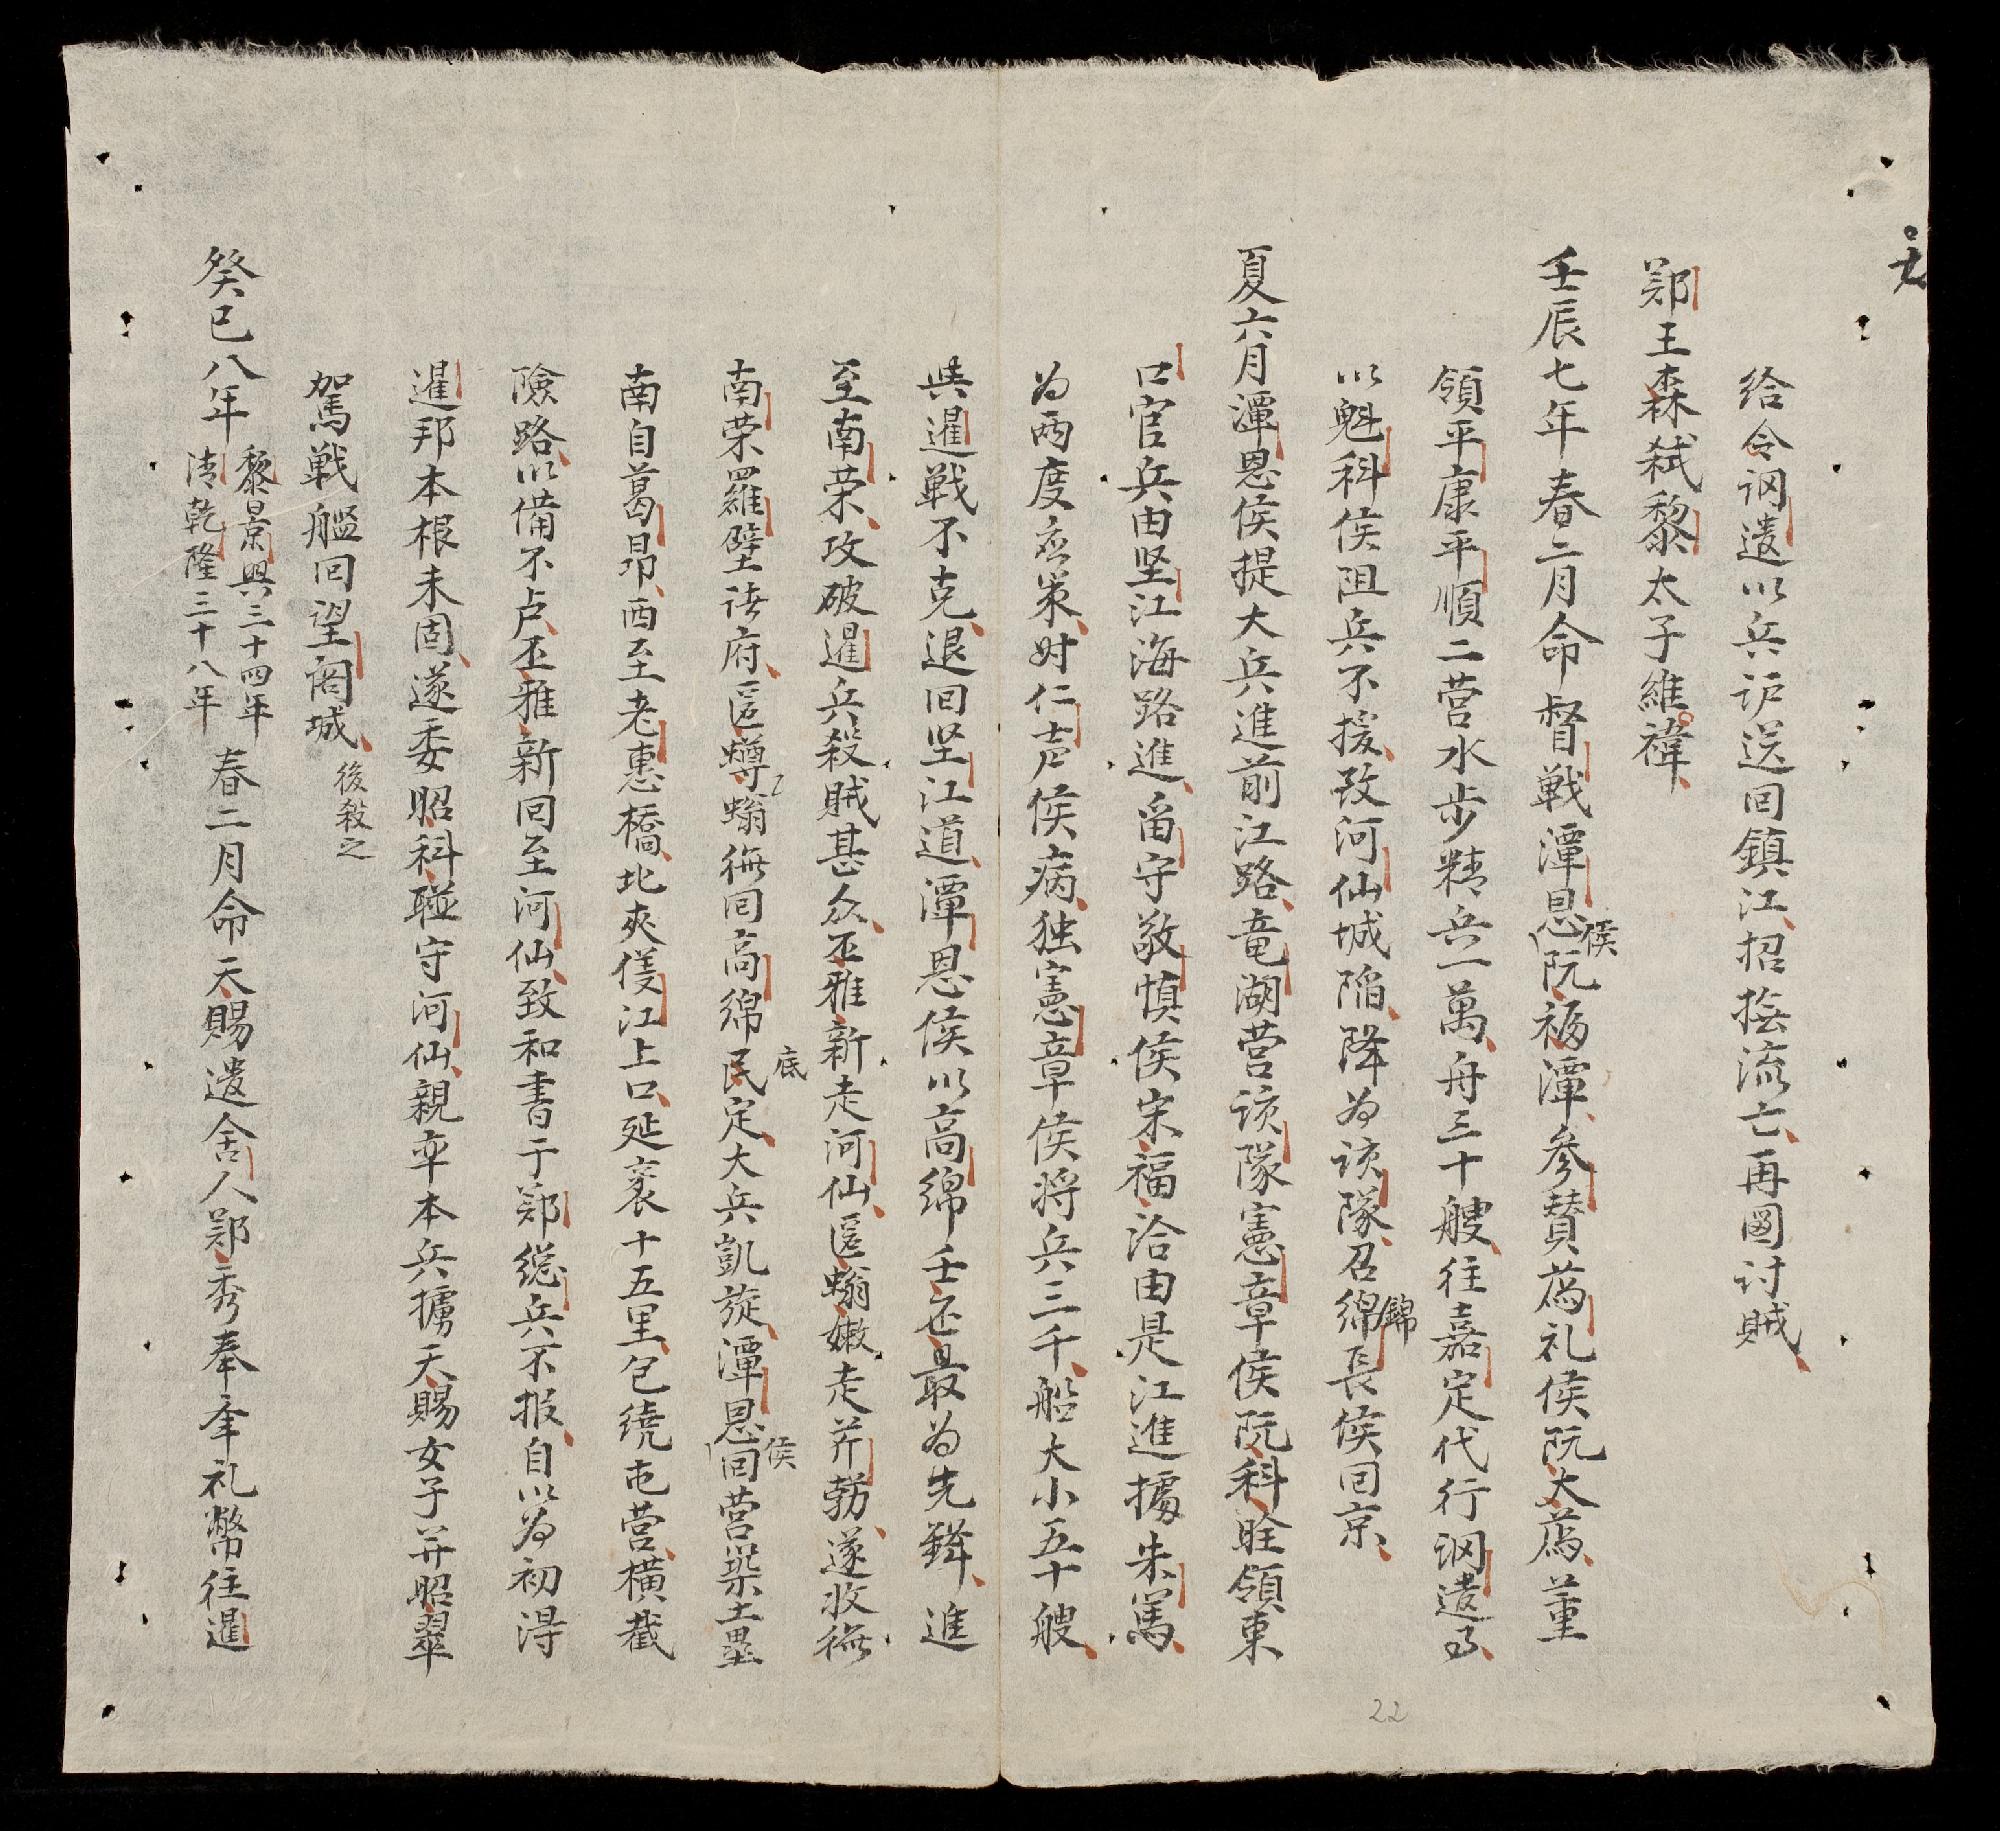 给令调遣以兵护送回鎮江招撫流亡再圖讨賊
鄭王森弑黎太子維禕
壬辰七年春二月命督戦潭恩侯阮福潭参賛薦礼侯阮大薦董
領平康平順二营水步精兵一萬舟三十艘往嘉定代行调遣事
以魁科侯阻兵不援致河仙城陷降为该隊召綿錦長侯回京
夏六月潭恩侯提大兵進前江路竜湖营该隊憲章侯阮科晊領東
口官兵由坚江海路進畱守敬慎侯宋福洽由是江進據朱篤
为両度应策时仁声侯病独憲章侯将兵三千船大小五十艘
與暹戦不克退回坚江道潭恩侯以高綿壬还最为先鋒進
至南荣攻破暹兵殺賊甚众丕雅新走河仙匿螉嫩走芹勃遂收復
南荣羅壁诸府匿蹲螉復回高綿民底定大兵凱旋潭恩侯回营築土壘
南自葛昂西至老惠橋北夾僊江上口延袤十五里包繞屯营横截
險路以備不虞丕雅新回至河仙致和書于鄭總兵不报自以为初得
暹邦本根未固遂委昭科聯守河仙親率本兵擄天賜女子并昭翠
駕戦艦回望閣城後殺之
癸巳八年黎景興三十四年清乾隆三十八年春二月命天賜遣舍人鄭秀奉書礼幣往暹
22